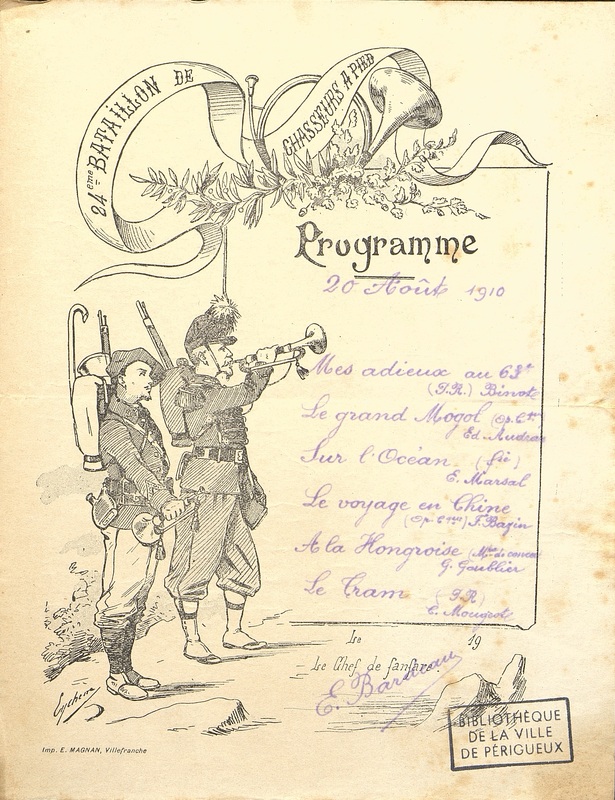 24ème BATAILLON DE
CHASSEURS A PIED
Programme
20 Août 1910
Mes adieux au 63e
(P.R.) Binot
Le grand Mogol (Op. Cque)
Ed. Audran
Sur l'Océan (fie)
E. Marsal
Le voyage en Chine
(Op. Cque) F. Bazin
A la Hongroise
G. Gaublier
Le Tram (P.R)
E. Mougeot
Le 19
Le Chef de fanfare.
E.
Imp. E. MAGNAN, Villefranche
BIBLIOTHÈQUE
DE LA VILLE
DE PÉRIGUEUX